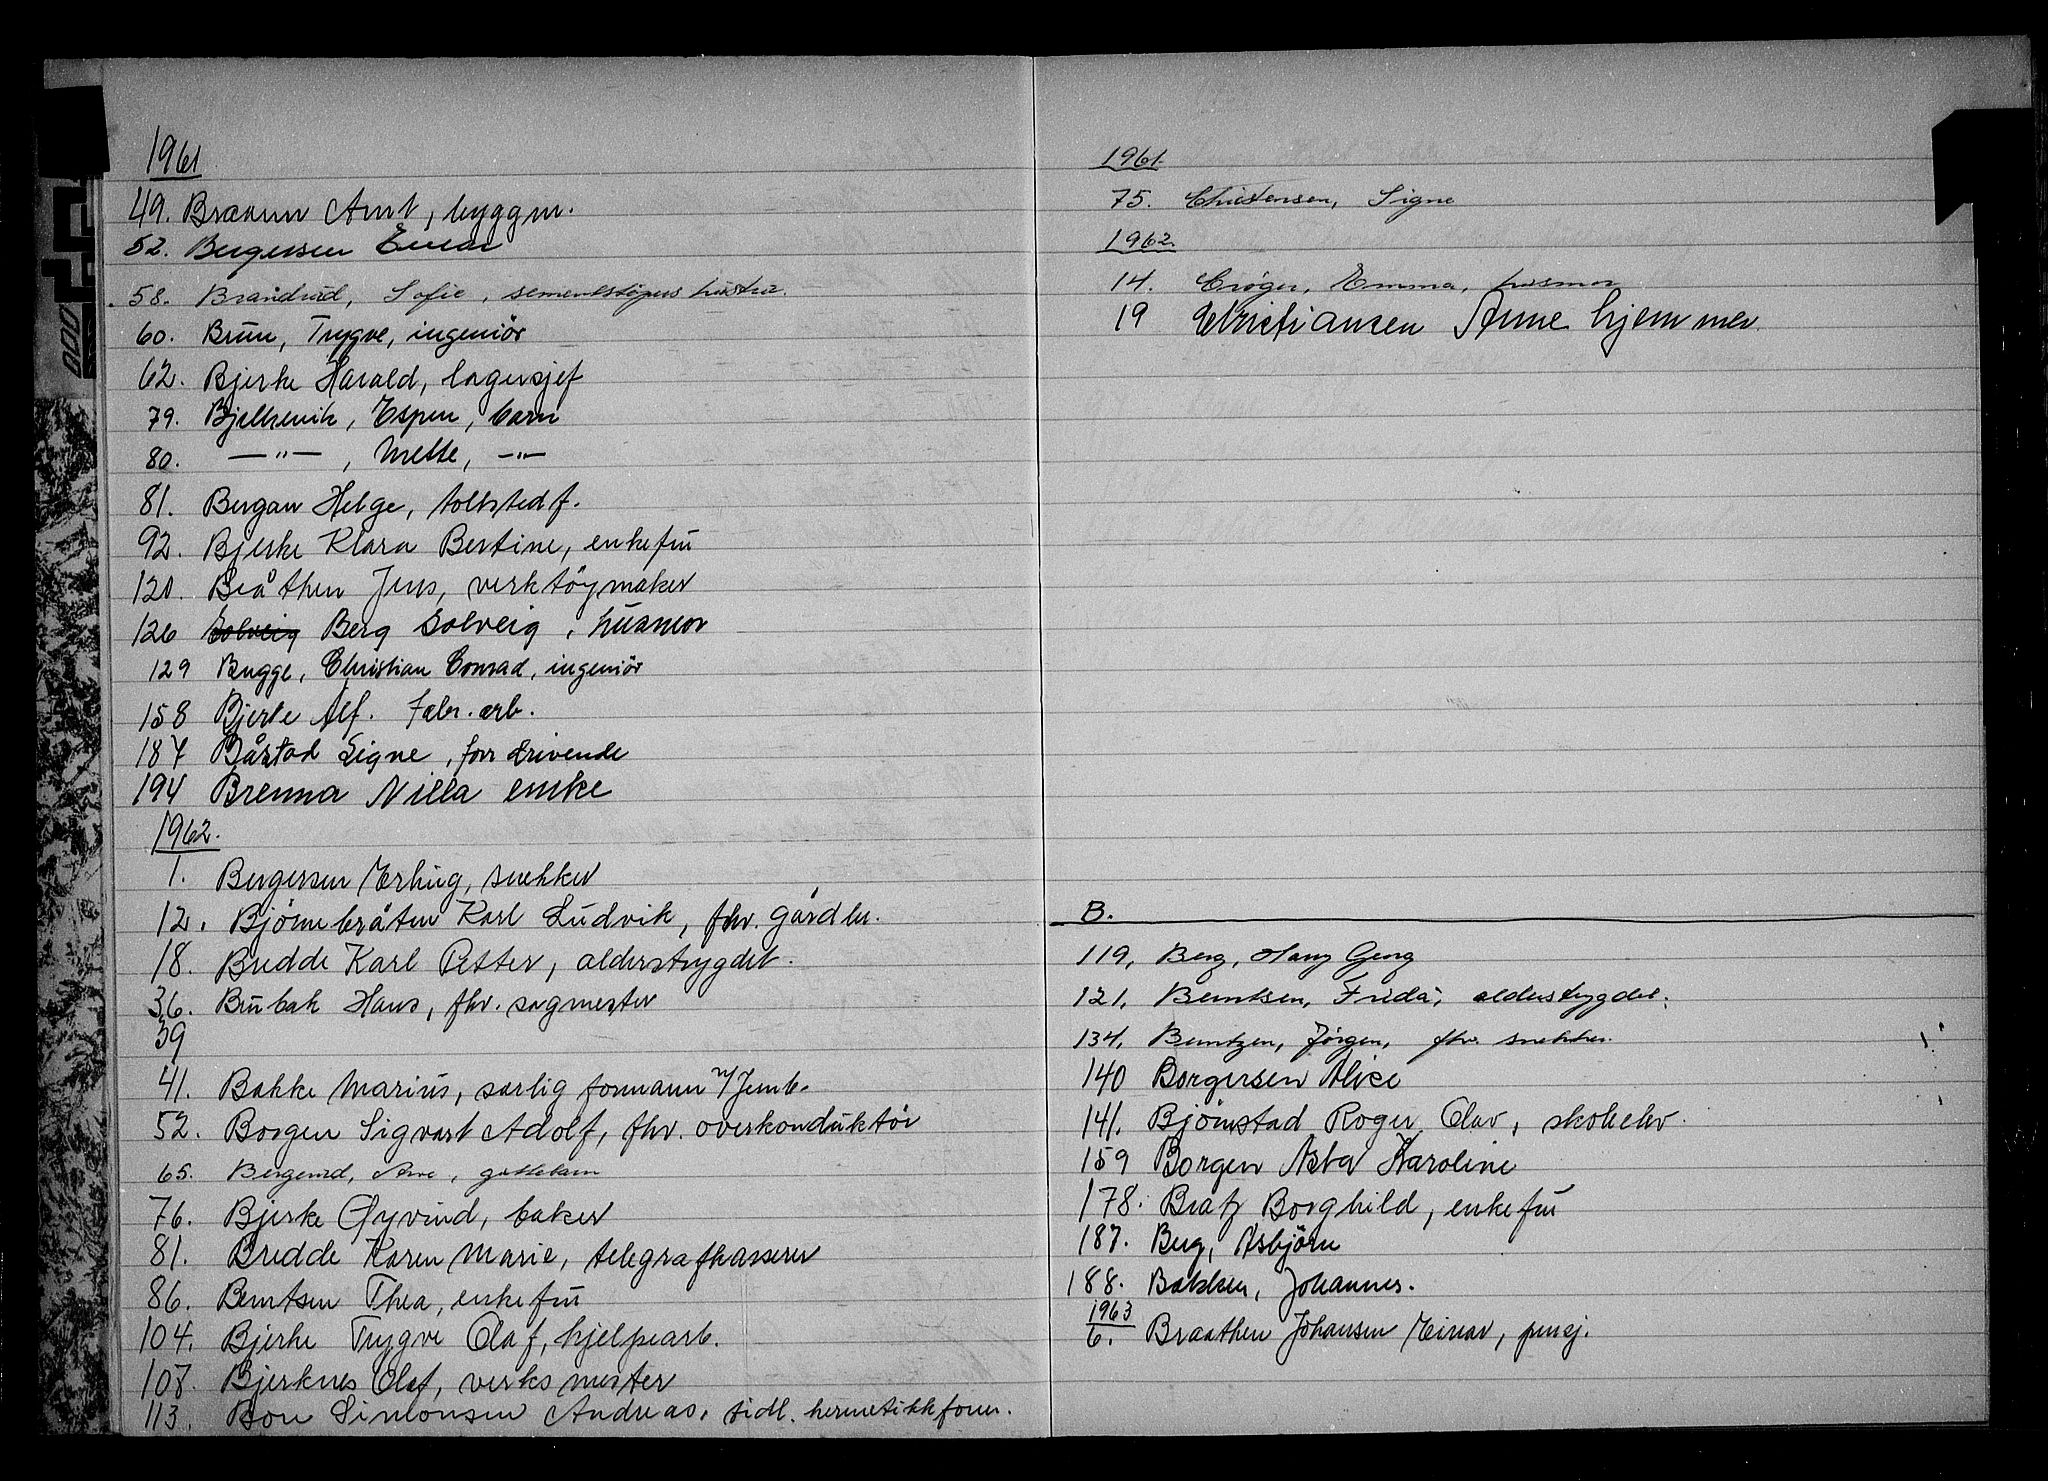 1961
49. Braaum Arnt, byggm.
52. Bergersen Einar
58. Brandrud, Sofie, sementstøpers hustru.
60. Brun, Trygve, ingeniör
62. Bjerke Harald, lagersjef
79. Bjelkevik, Espen, barn
80. —"—, Mette, —"—
81. Bergan Helge, tollstedf.
92. Bjerke Klara Bertine, enkefru
120. Bråthen Jens, verktöymaker
126 Solveig Berg Solveig, husmor
129 Bugge, Christian Conrad, ingeniör
158 Bjerke Alf. Fabr. arb.
187 Båstad Signe, forr.drivende
194 Brenna Nilla enke
1962.
1. Bergersen Erling, snekker
12. Björnebråten Karl Ludvik, fhv. gårdbr.
18. Bredde Karl Petter, alderstrygdet.
36. Brubak Hans, fhv. sagmester
39
41. Bakke Marius, særlig formann v/Jernb.
52. Borgen Sigvart Adolf, fhv. overkonduktör
65. Bergerud, Arve, guttebarn
76. Bjerke Øyvind, baker
81. Bredde Karen Marie, telegrafkasserer
86. Berntsen Thea, enkefru
104. Bjerke Trygve Olaf, hjelpearb.
107. Bjerknes Olaf, verksmester
113. Bon Simonsen Andreas, tidl. hermetikkform.
1961.
75. Christensen, Signe
1962.
14. Crøger, Emma, husmor
19 Christiansen Anne hjemmev.
B.
119, Berg, Hans Georg
121, Berntsen, Frida, alderstrygdet.
134, Berntzen, Jörgen, fhv. snekker.
140 Borgersen Alice
141. Björnstad Roger Olav, skoleelev.
159 Borgen Asta Karoline
178. Bratz Borghild, enkefru
187. Berg, Asbjörn
188. Bakken, Johannes.
1963
6. Braathen Johansen Einar, pensj.